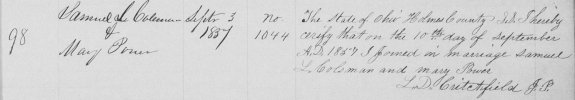 98
Samuel L Coleman
&
Mary Power
Septr 3
1857
No.
1044
The State of Ohio Holmes County S.S. I hereby
certify that on the 10th day of September
A.D. 1857 I joined in marriage Samuel
L. Coleman and Mary Power
L.D. Critchfield J.P.